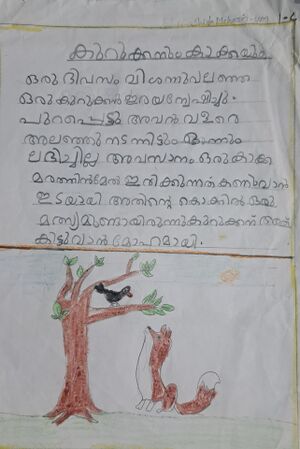 കുറുക്കനും കാക്കയും
ഒരു ദിവസം വിശന്നുവലഞ്ഞ
ഒരു കുറുക്കൻ ഇരയന്വേഷിച്ചു.
പുറപ്പെട്ടു അവൻ വളരെ
അലഞ്ഞു നടന്നിട്ടും ഒന്നും
ലഭിച്ചില്ല അവസാനം ഒരു കാക്ക
മരത്തിൻമേൽ ഇരിക്കുന്നത് കണുവാൻ
ഇടയായി അതിന്റെ കൊക്കിൽ ഒരു
മത്സ്യമുണ്ടായിരുന്നു കുറുക്കന്
കിട്ടുവാൻ മോഹമായി.